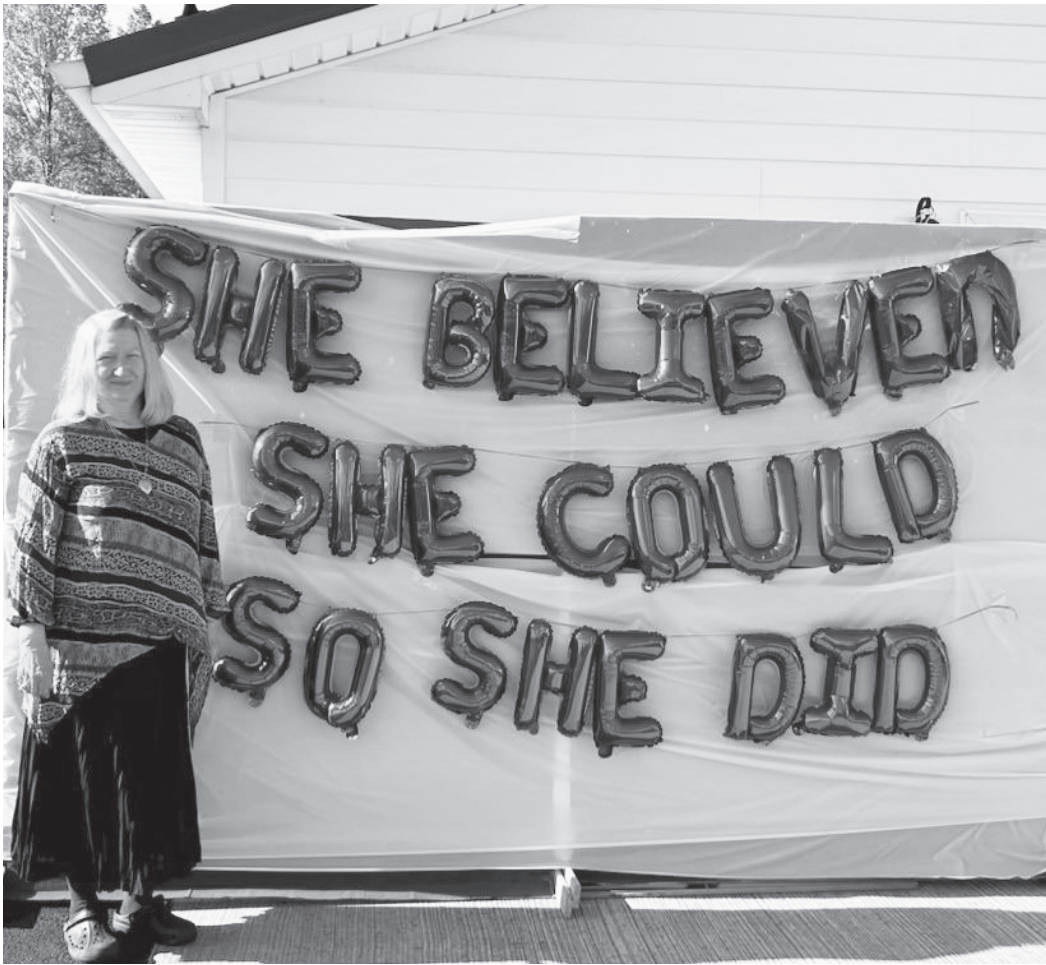 SHE BELIEVED
SHE COULD
SO SHE DID